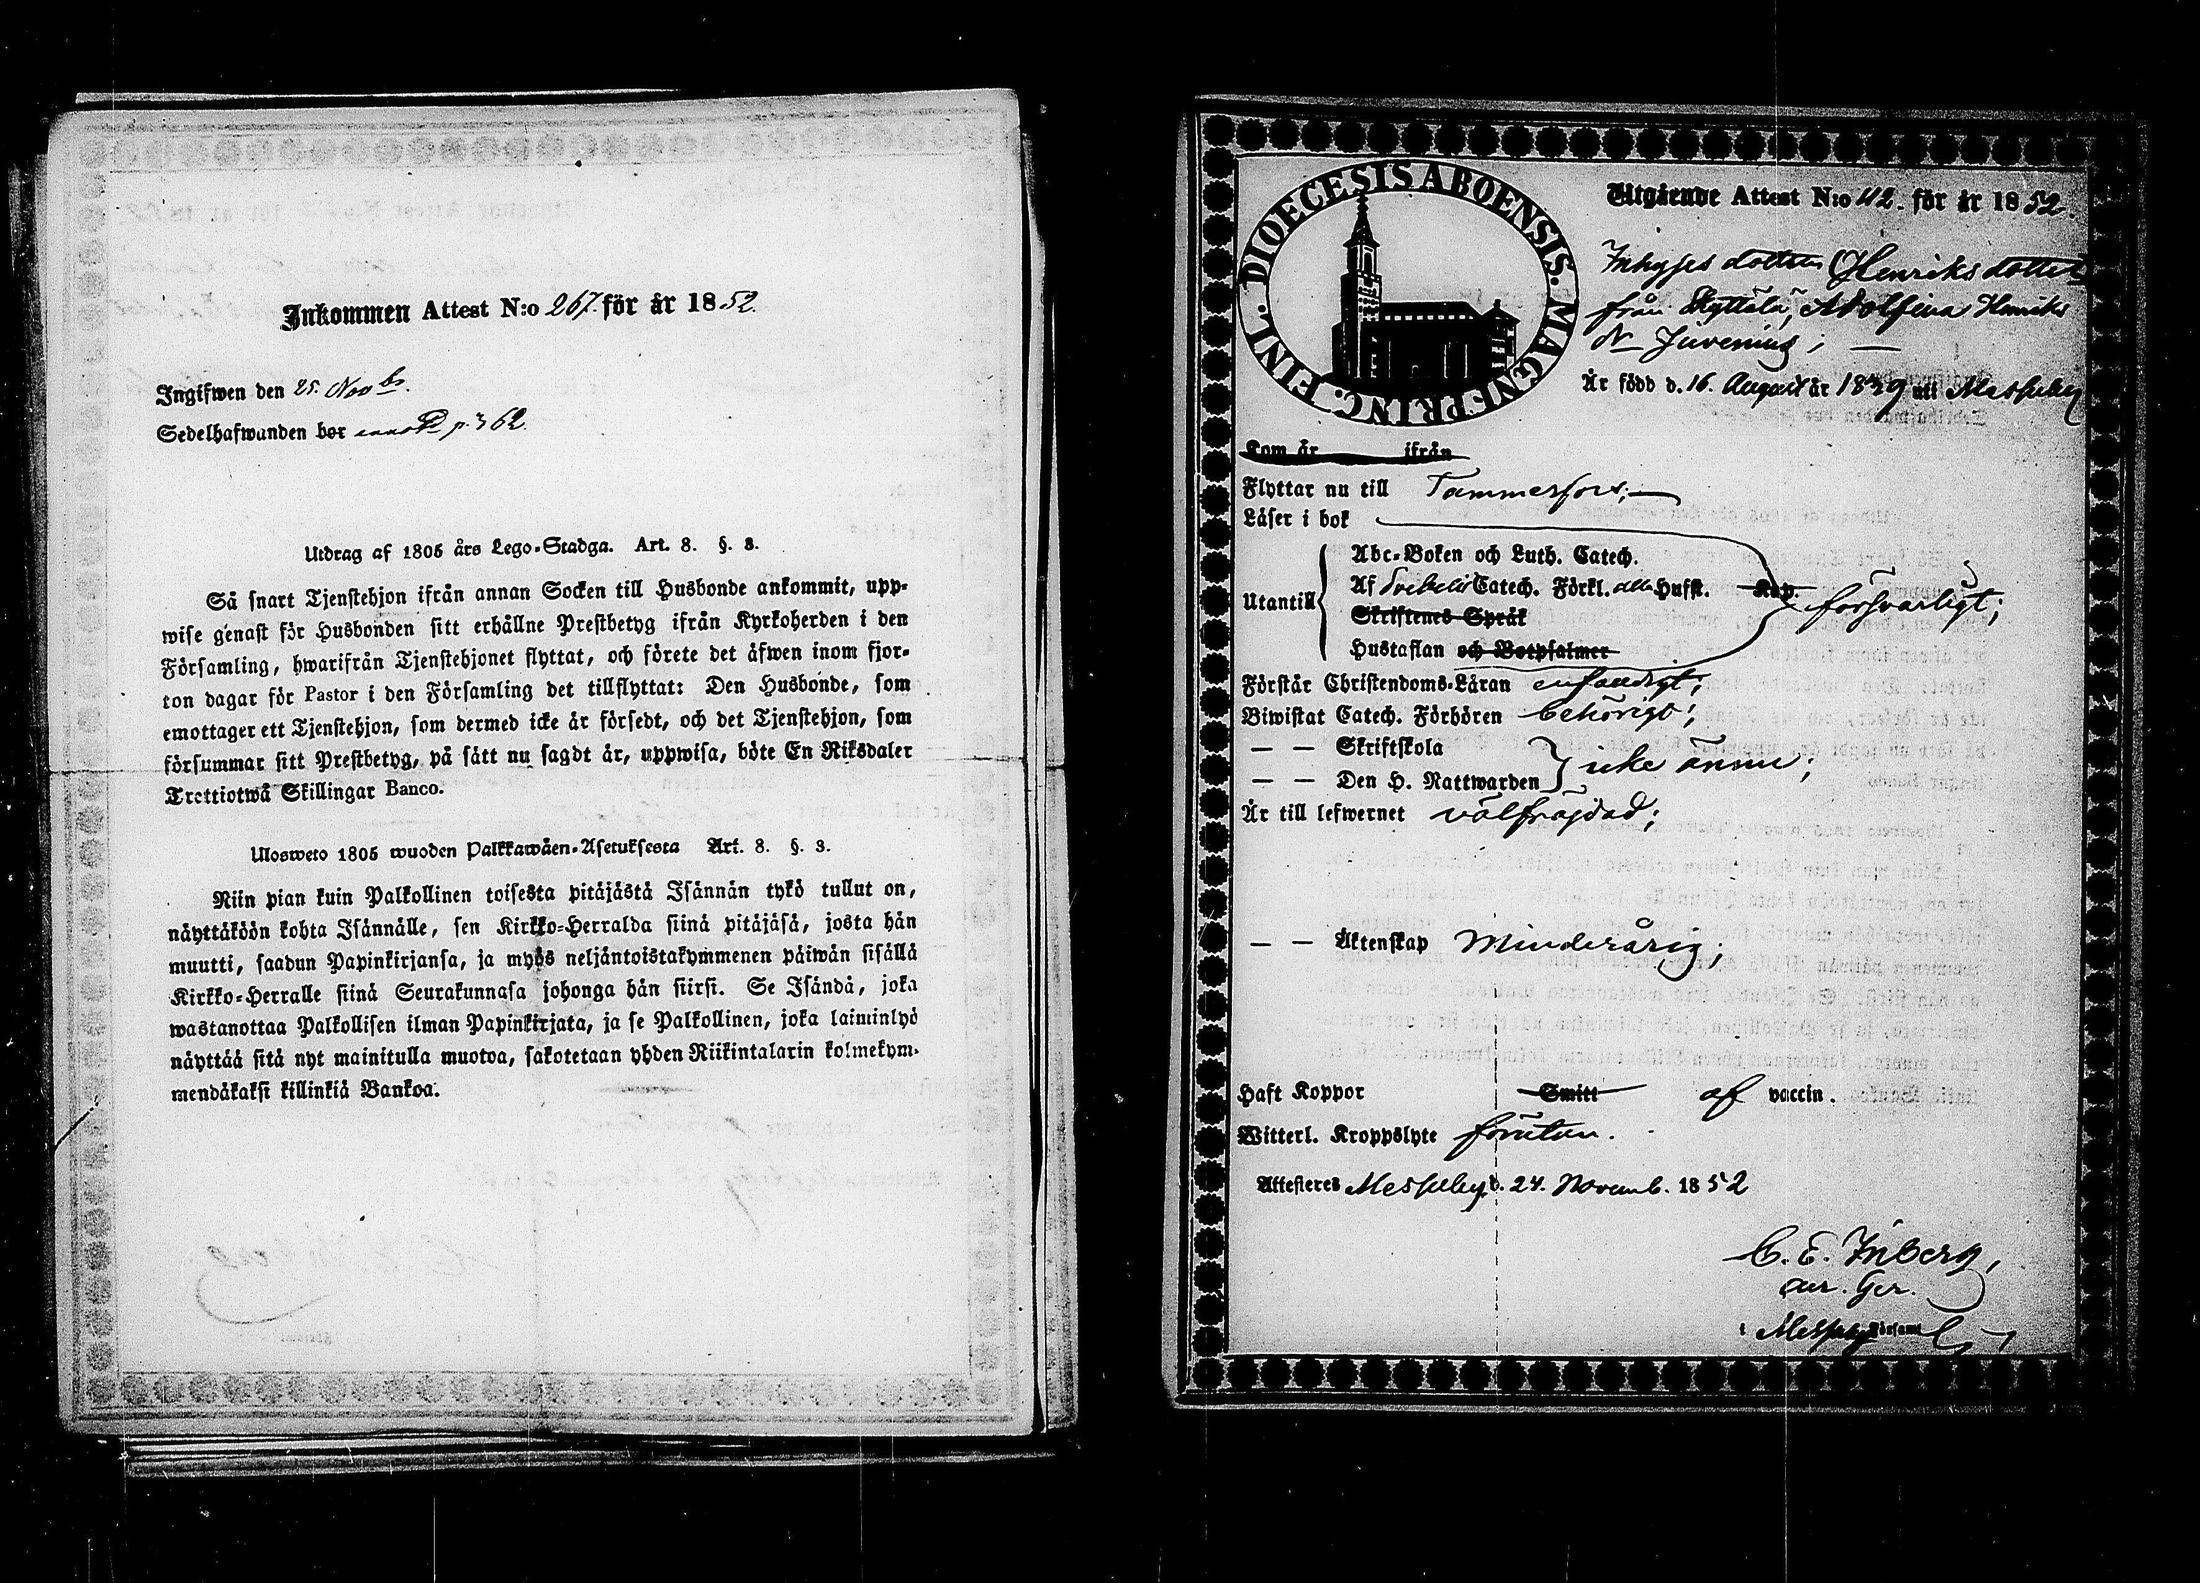 Inkommen Attest N:o 267. för år 1852.
Ingifwen den 25. Novbr.
Sedelhafwanden bor p. 362.
Utdrag af 1805 års Lego-Stadga. Art. 8. §. 3.
Så snart Tjenstehjon ifrån annan Socken till Husbonde ankommit, upp-
wise genast för Husbonden sitt erhållne Prestbetyg ifrån Kyrkoherden i den
Församling, hwarifrån Tjenstehjonet flyttat, och förete det äfwen inom fjor-
ton dagar för Pastor i den Församling det tillflyttat: Den Husbonde, som
emottager ett Tjenstehjon, som dermed icke är försedt, och det Tjenstehjon, som
försummar sitt Prestbetyg, på sätt nu sagdt är, uppwisa, böte En Riksdaler
Trettiotwå Skillingar Banco.
Ulosweto 1805 wuoden Palkkawäen-Asetuksesta Art. 8. §. 3.
Niin pian kuin Palkollinen toisesta pitäjästä Isännän tykö tullut on,
näyttäköön kohta Isännälle, sen Kirkko-Herralda siinä pitäjäsä, josta hän
muutti, saadun Papinkirjansa, ja myös neljäntoistakymmenen päiwän sisällä
Kirkko-Herralle siinä Seurakunnasa johonga hän siirsi. Se Isändä, joka
wastanottaa Palkollisen ilman Papinkirjata, ja se Palkollinen, joka laiminlyö
näyttää sitä nyt mainitulla muotoa, sakotetaan yhden Riikintalarin kolmekym-
mendäkaksi killinkiä Bankoa.
DIOECESIS ABOENSIS. MAGNI PRINC. FINL.
Utgående Attest N:o 42. för år 1852.
Inhyses dottren Henriksdotter
från Skyttälä, Adolfina Henriks
dr Juvenius; —
Är född d. 16. August år 1839 uti Messuby
Kom år ifrån
Flyttar nu till Tammerfors; —
Läser i bok
Abc-Boken och Luth. Catech.
Utantill Af Svebelii Catech. Förkl. alla Hufst. Kap. försvarligt;
Skriftenes Språk
Hustaflan och Botpsalmer
Förstår Christendoms-Läran enfaldigt;
Biwistat Catech. Förhören behörigt;
— — Skriftskola
— — Den H. Nattwarden icke ännu;
Är till lefwernet välfräjdad;
— — Äktenskap Minderårig;
Haft Koppor Smitt af vaccin.
Witterl. Kroppslyte förutan.
Attesteres Messuby d. 24. Novemb. 1852
C. E. Inberg,
i Messuby Församl